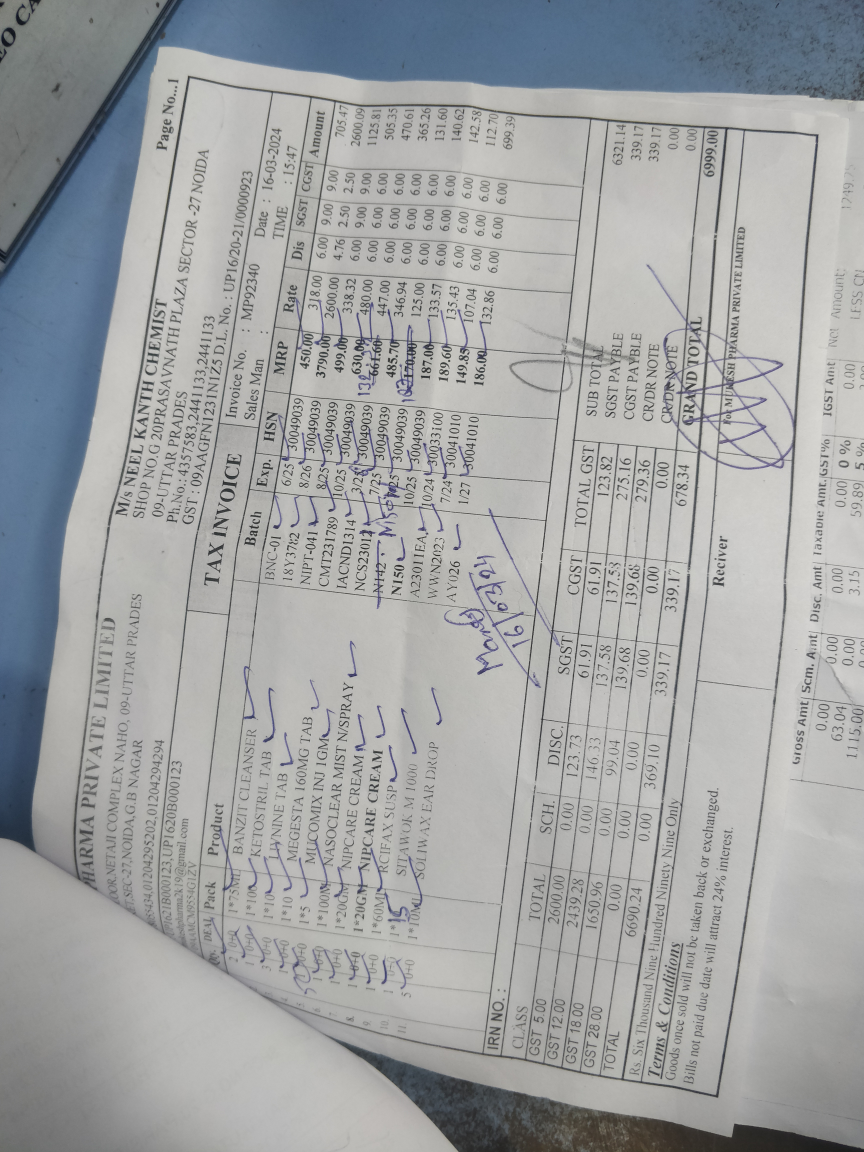 EO CA
Page No...1
PHARMA PRIVATE LIMITED
OOR,NETAJI COMPLEX NAHO, 09-UTTAR PRADES
ET,SEC-27,NOIDA,G.B NAGAR
01204295202,01204294294
UP1620B000123
M/s NEEL KANTH CHEMIST
SHOP NO.G 20PRASAVNATH PLAZA SECTOR -27 NOIDA
09-UTTAR PRADES
Ph.No.:4357583,2441133,2441133
GST : 09AAGFN1231N1Z5 D.L. No. : UP16/20-21/0000923
TAX INVOICE
Invoice No. : MP92340 Date : 16-03-2024
Sales Man : TIME : 15:47
DEAL Pack Product Batch Exp. HSN MRP Rate Dis SGST CGST Amount
2 0+0 1*75ML BANZIT CLEANSER BNC-01 6/25 30049039 450.00 318.00 6.00 9.00 9.00 705.47
1 0+0 1*100 KETOSTRIL TAB 18Y3782 8/26 30049039 3790.00 2600.00 4.76 2.50 2.50 2600.09
3 0+0 1*10 TAB NIPT-041 8/25 30049039 499.00 338.32 6.00 9.00 9.00 1125.81
1 0+0 1*10 MEGESTA 160MG TAB CMT231789 10/25 30049039 630.00 480.00 6.00 6.00 6.00 505.35
1*5 MUCOMIX INJ 1GM IACND1314 3/25 30049039 661.60 447.00 6.00 6.00 6.00 470.61
1 0+0 1*100M NASOCLEAR MIST N/SPRAY NCS23012 7/25 30049039 485.70 346.94 6.00 6.00 6.00 365.26
1 0+0 1*20GM NIPCARE CREAM N142 30049039 170.00 125.00 6.00 6.00 6.00 131.60
1 0+0 1*20GM NIPCARE CREAM N150 10/25 30049039 187.00 133.57 6.00 6.00 6.00 140.62
1 0+0 1*60ML RCIFAX SUSP A23011EA 10/24 30033100 189.60 135.43 6.00 6.00 6.00 142.58
1 1*15 SITAWOK M 1000 WWN2023 7/24 30041010 149.85 107.04 6.00 6.00 6.00 112.70
5 0+0 1*10ML SOLIWAX EAR DROP AY026 1/27 30041010 186.00 132.86 6.00 6.00 6.00 699.39
16/03/24
IRN NO. :
CLASS TOTAL SCH. DISC. SGST CGST TOTAL GST
GST 5.00 2600.00 0.00 123.73 61.91 61.91 123.82
GST 12.00 2439.28 0.00 146.33 137.58 137.58 275.16
GST 18.00 1650.96 0.00 99.04 139.68 139.68 279.36
GST 28.00 0.00 0.00 0.00 0.00 0.00 0.00
TOTAL 6690.24 0.00 369.10 339.17 339.17 678.34
SUB TOTAL 6321.14
SGST PAYBLE 339.17
CGST PAYBLE 339.17
CR/DR NOTE 0.00
CR/DR NOTE 0.00
GRAND TOTAL 6999.00
Rs. Six Thousand Nine Hundred Ninety Nine Only
Terms & Conditions
Goods once sold will not be taken back or exchanged.
Bills not paid due date will attract 24% interest.
Reciver
For MUKESH PHARMA PRIVATE LIMITED
Gross Amt Scm. Amt Disc. Amt Taxable Amt. GST% IGST Amt Net Amount
0.00 0.00 0.00 0.00 0 % 0.00
63.04 0.00 3.15 59.89 5 %
1115.00
1249.75
LESS CN